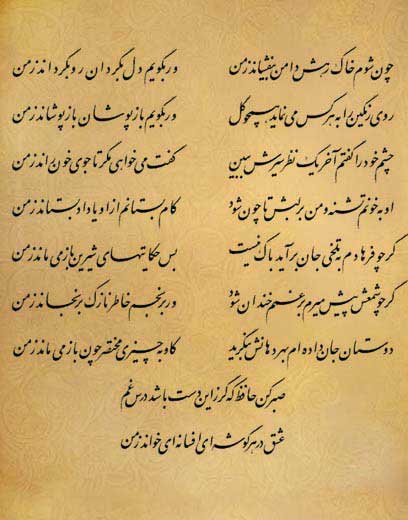 چون شوم خاک رهش دامن بیفشاند ز من ور بگویم دل بگردان رو بگرداند ز من
روی رنگین را به هر کس می نماید همچو گل ور بگویم باز پوشان باز پوشاند ز من
چشم خود را گفتم آخر یک نظر سیرش ببین گفت می خواهی مگر تا جوی خون راند ز من
او به خونم تشنه و من بر لبش تا چون شود کام بستانم از او یا داد بستاند ز من
گر چو فرهادم به تلخی جان برآید باک نیست بس حکایتهای شیرین باز می ماند ز من
گر چو شمعش پیش میرم بر غمم خندان شود ور برنجم خاطر نازک برنجاند ز من
دوستان جان داده ام بهر دهانش بنگرید کاو به چیزی مختصر چون باز می ماند ز من
صبر کن حافظ که گر زین دست باشد درس غم
عشق در هر گوشه ای افسانه ای خواند ز من